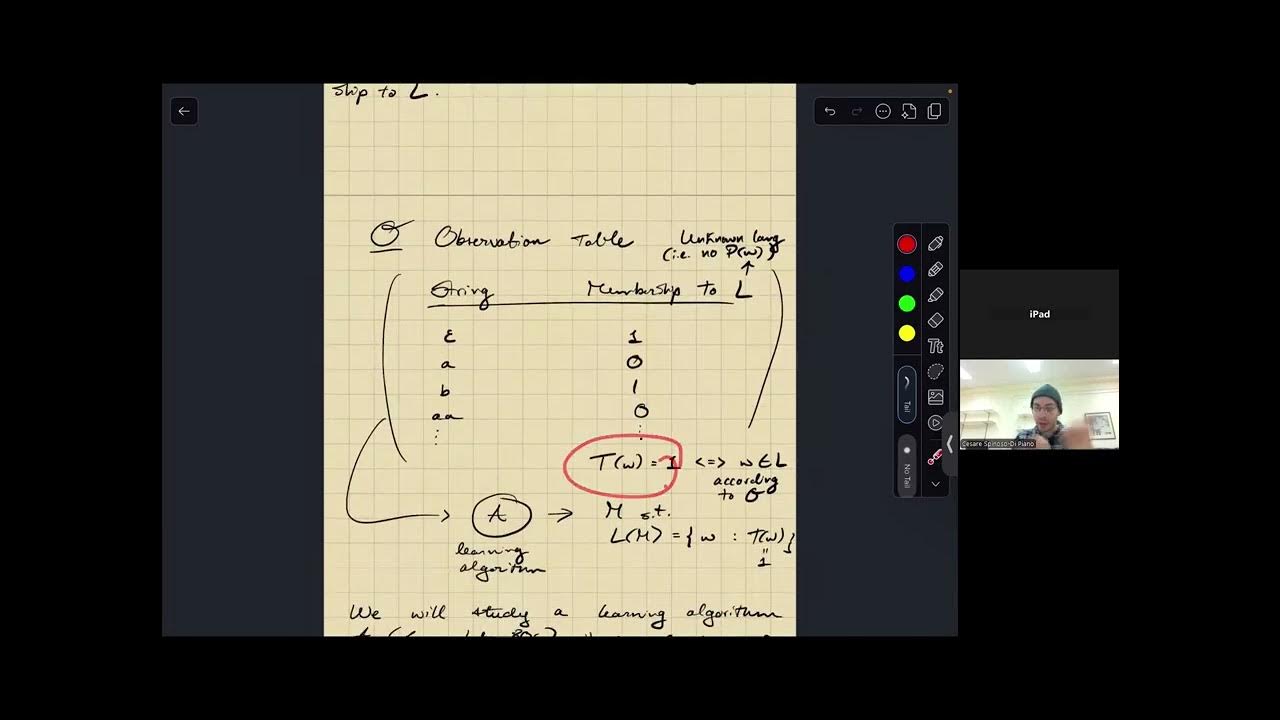 ship to L.
O Observation Table
Unknown lang
(i.e. no P(w))
String Membership to L
ε 1
a 0
b 1
aa 0
T(w) = 1 <=> w ∈ L
according
to O
A → M s.t.
L(M) = { w : T(w) }
"
1
learning
algorithm
We will study a learning algorithm
Tt
Tail
No Tail
iPad
Cesare Spinoso-Di Piano